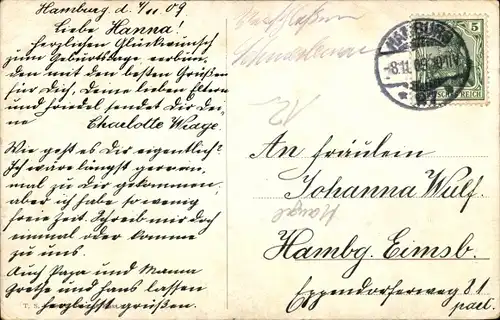 Hamburg d. 7/11. 09
Liebe Hanna!
herzlichen Glückwunsch
zum Geburtstage verbun-
den mit den besten Grüßen
für Dich, Deine lieben Eltern
und sendet Dir Dei-
ne Charlotte
Wie geht es Dir eigentlich?
Ich wäre längst gern ein-
mal zu Dir gekommen,
aber ich habe so wenig
freie Zeit. Schreib mir doch
einmal oder komme
zu uns.
Auch Papa und Mama
Grethe und Hans lassen
herzlichst grüßen.
HAMBURG
-8.11.09
* 21.
5
DEUTSCHES REICH
12
An Fräulein
Johanna Wulf.
Hambg. Eimsb.
Eppendorferweg 81
part.
T. S.